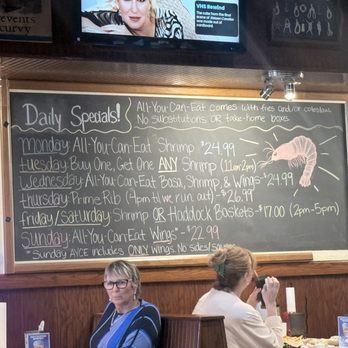 VHS Rewind
events
curvy
Daily Specials!
All-You-Can-Eat comes with fries and/or coleslaw
No substitutions OR take-home boxes
monday: All-You-Can-Eat Shrimp $24.99
tuesday: Buy One, Get One ANY Shrimp (11am-2pm)
Wednesday: All-You-Can-Eat Basa, Shrimp, & Wings-$24.99
thursday: Prime Rib (4pm til we run out) - $26.99
friday/Saturday Shrimp OR Haddock Baskets-$17.00 (2pm-5pm)
Sunday: All-You-Can-Eat Wings* - $22.99
*Sunday AYCE includes ONLY Wings. No sides/